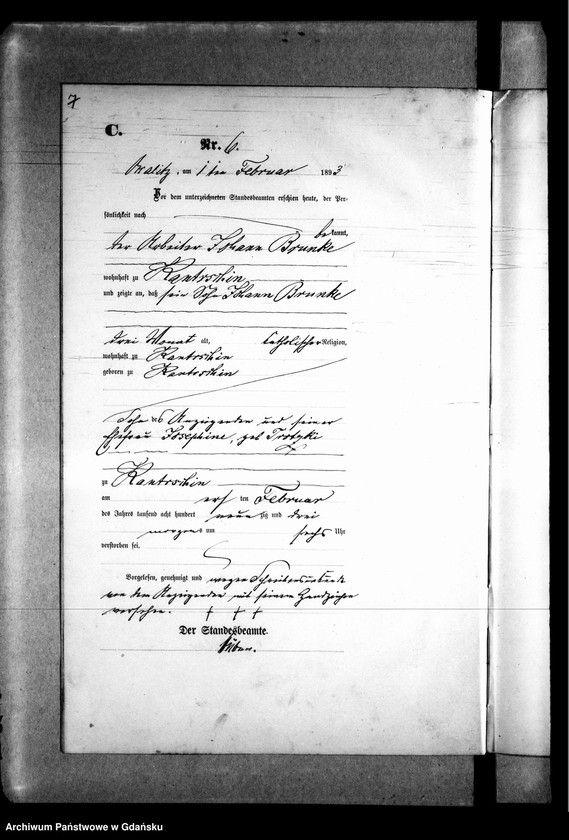 7
C.
Nr. 6.
am 1 ten Februar 1893
Vor dem unterzeichneten Standesbeamten erschien heute, der Per-
sönlichkeit nach
bekannt,
der Arbeiter Johann Brunke
wohnhaft zu Kantrschin
und zeigte an, daß sein Sohn Johann Brunke
drei Monat alt, catholischer Religion,
wohnhaft zu Kantrschin
geboren zu Kantrschin
Sohn des Anzeigenden und seiner
Ehefrau Josephine, geb
zu Kantrschin
am ersten Februar
des Jahres tausend acht hundert neunzig und drei
morgens um sechs Uhr
verstorben sei.
Vorgelesen, genehmigt und wegen Schreibensunkunde
von dem Anzeigenden mit seinem Handzeichen
versehen. † † †
Der Standesbeamte.
Archiwum Państwowe w Gdańsku